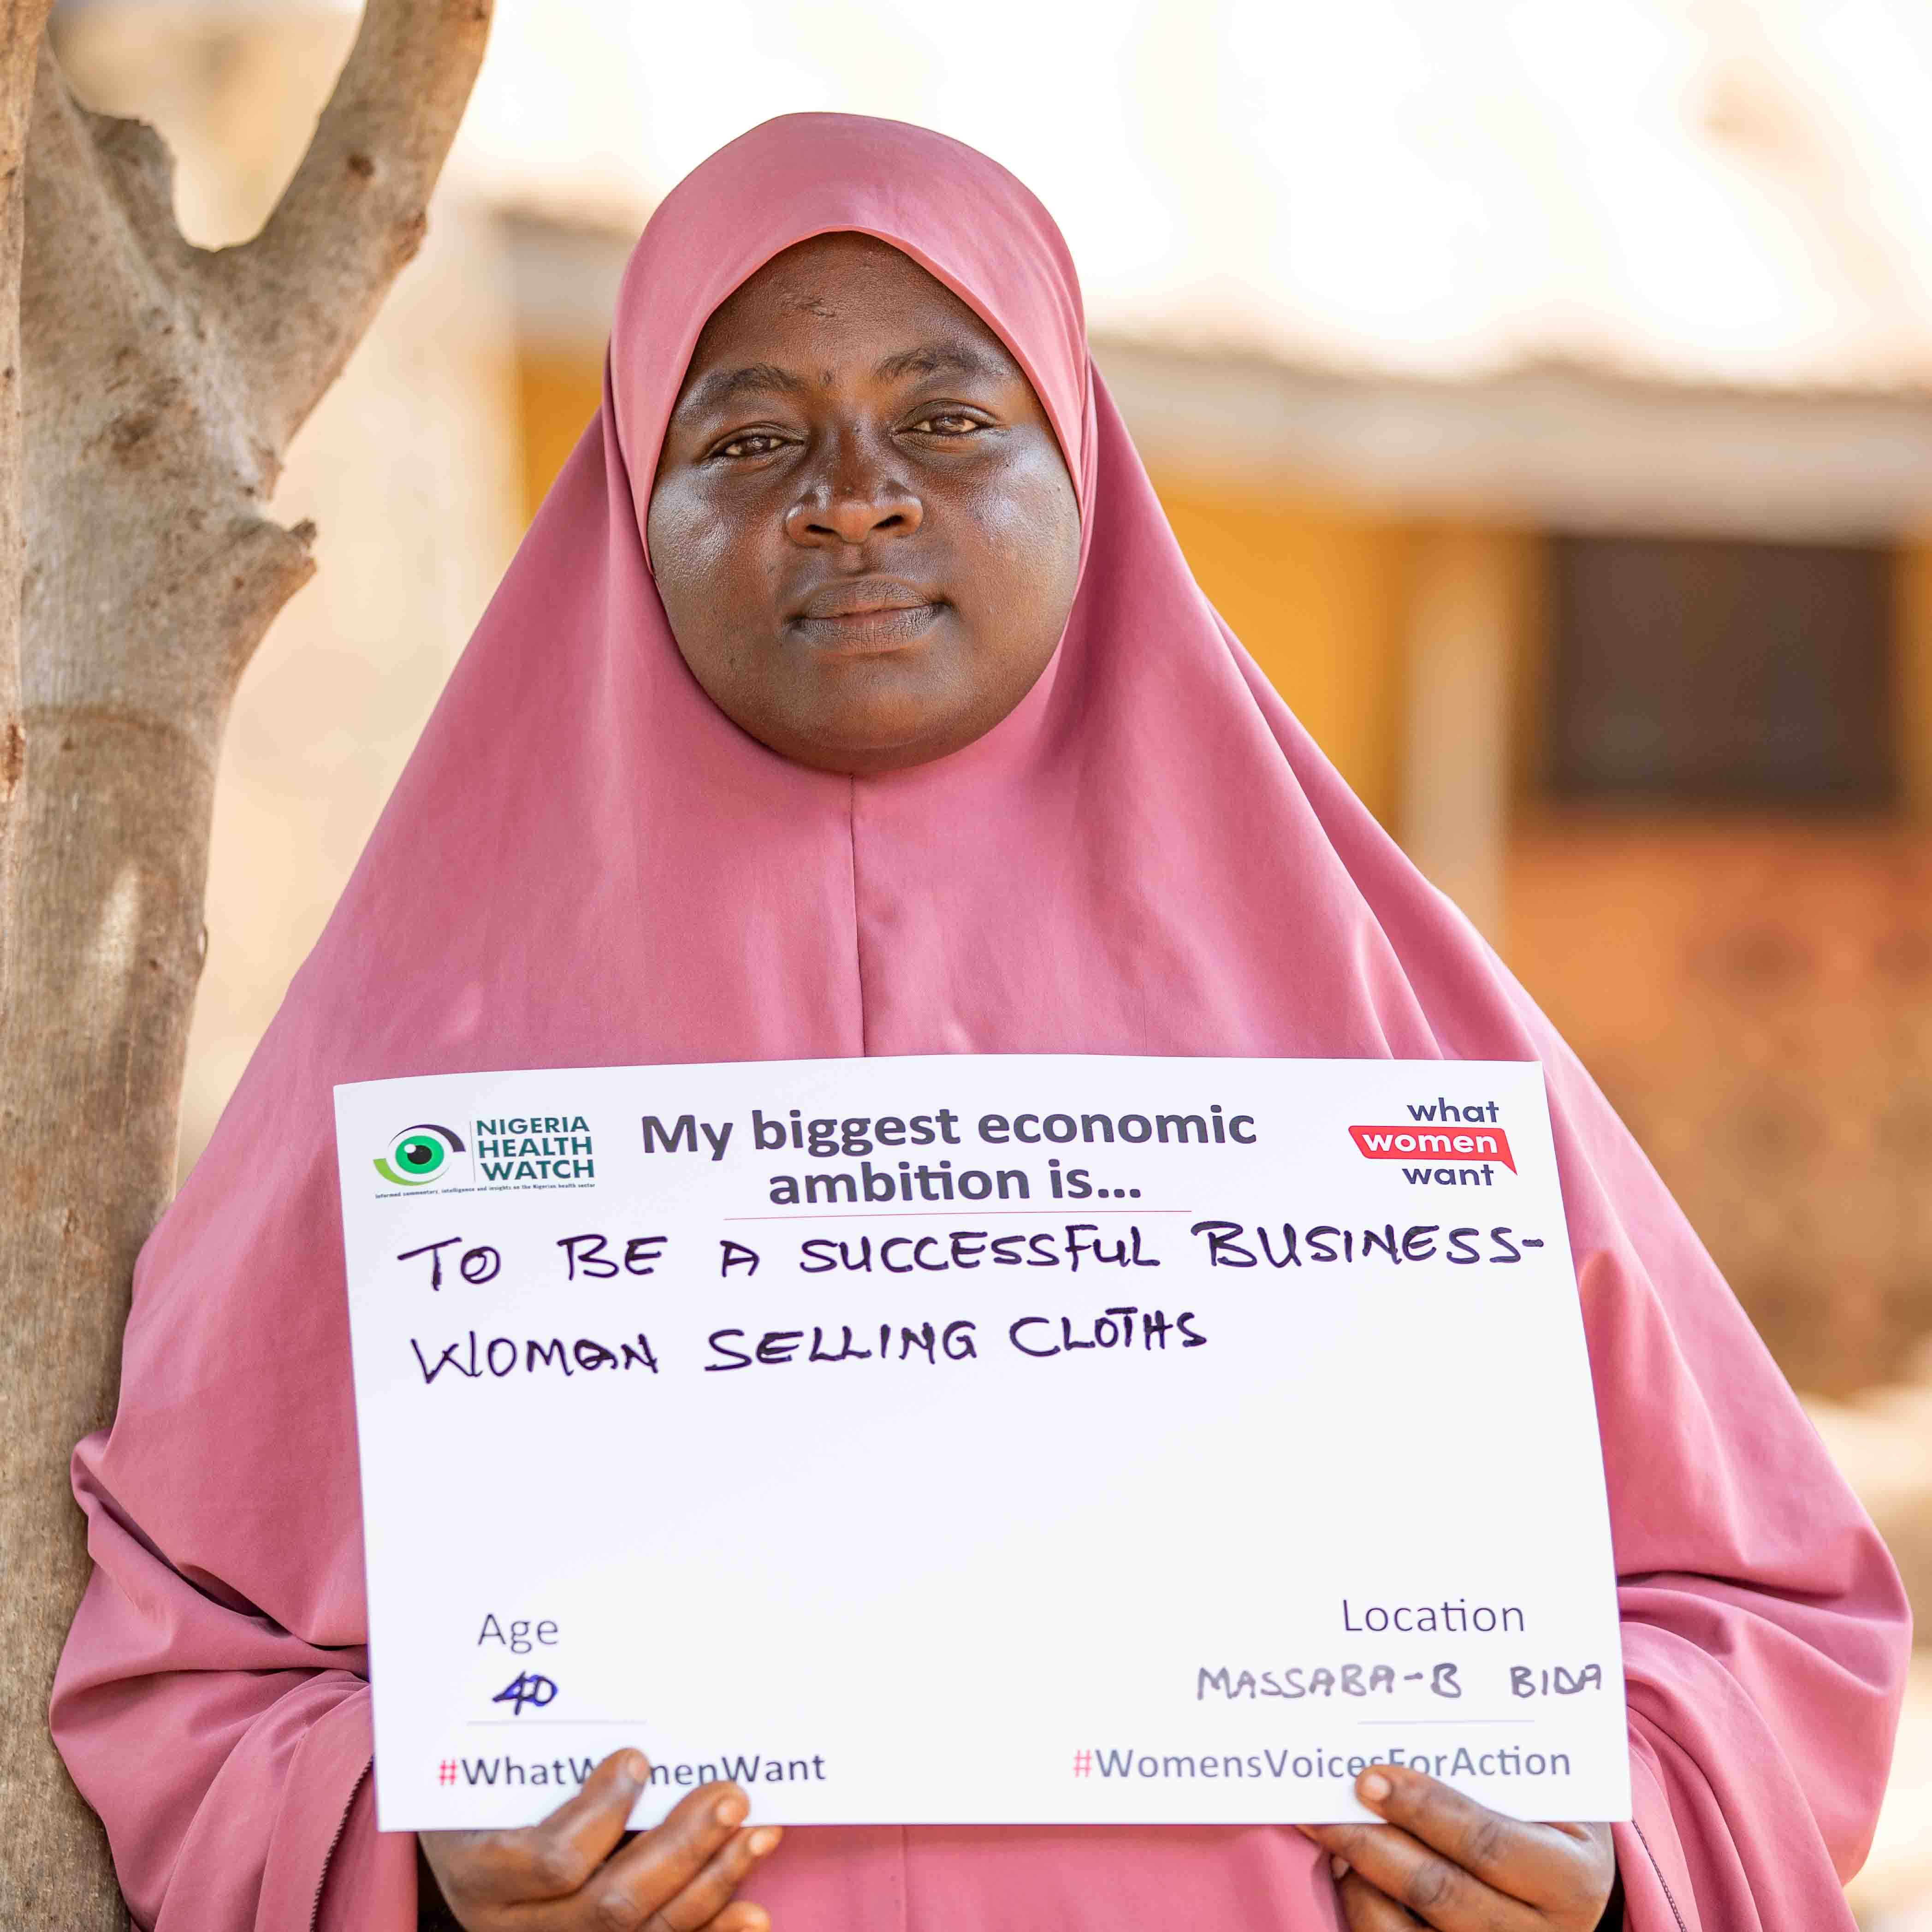 NIGERIA
HEALTH
WATCH
Informed commentary, intelligence and insights on the Nigerian health sector
My biggest economic
ambition is...
what
women
want
TO BE A SUCCESSFUL BUSINESS-
WOMAN SELLING CLOTHS
Age
40
Location
MASSABA-B BIDA
#WhatWomenWant
#WomensVoicesForAction